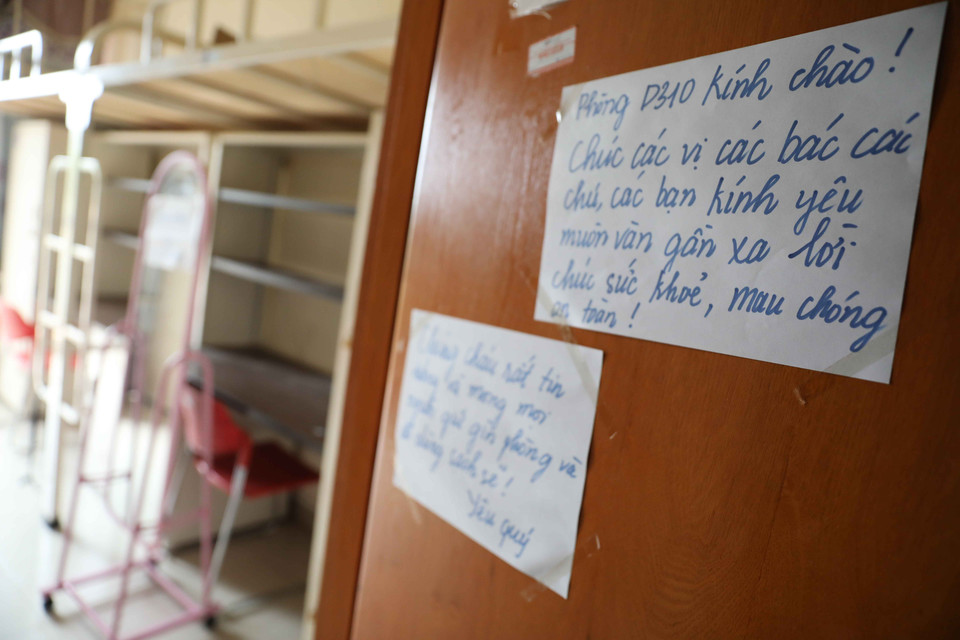 Phòng D310 kính chào!
Chúc các vị các bác các
chú, các bạn kính yêu
muôn vàn gần xa lời
chúc sức khoẻ, mau chóng
an toàn!
Chúng cháu rất tin
mong mọi
giữ gìn phòng và
sạch sẽ!
Yêu quý